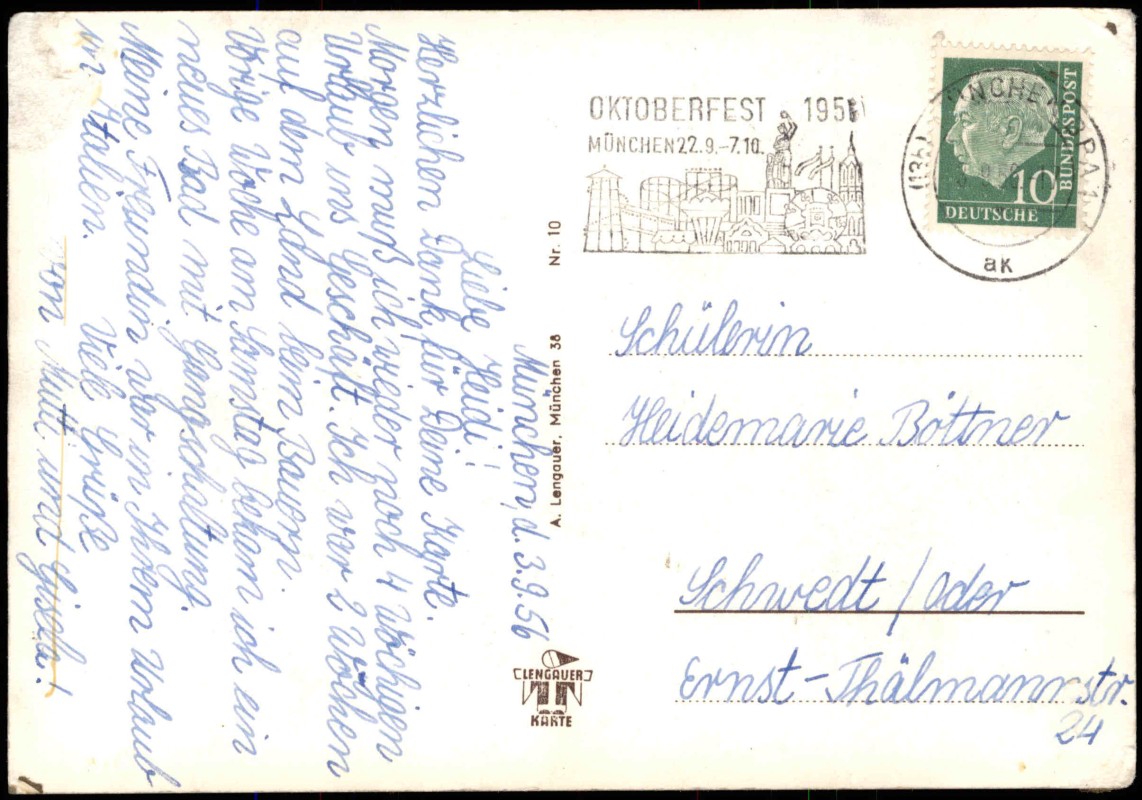 München, d. 3.9.56
Liebe Heidi!
Herzlichen Dank für Deine Karte.
Morgen muß ich wieder nach 4 wöchigen
Urlaub ins Geschäft. Ich war 2 Wochen
auf dem Land beim Bauern.
Vorige Woche am Samstag bekam ich ein
neues Rad mit Gangschaltung.
Meine Freundin war in Ihrem Urlaub
in Italien.
Viele Grüße
von Mutti und Gisela!
A. Lengauer, München 38 Nr. 10
LENGAUER
KARTE
OKTOBERFEST 1956
MÜNCHEN 22.9.-7.10.
(13b) MÜNCHEN
ak
10
DEUTSCHE
BUNDESPOST
Schülerin
Heidemarie Böttner
Schwedt/Oder
Ernst-Thälmannstr.
24